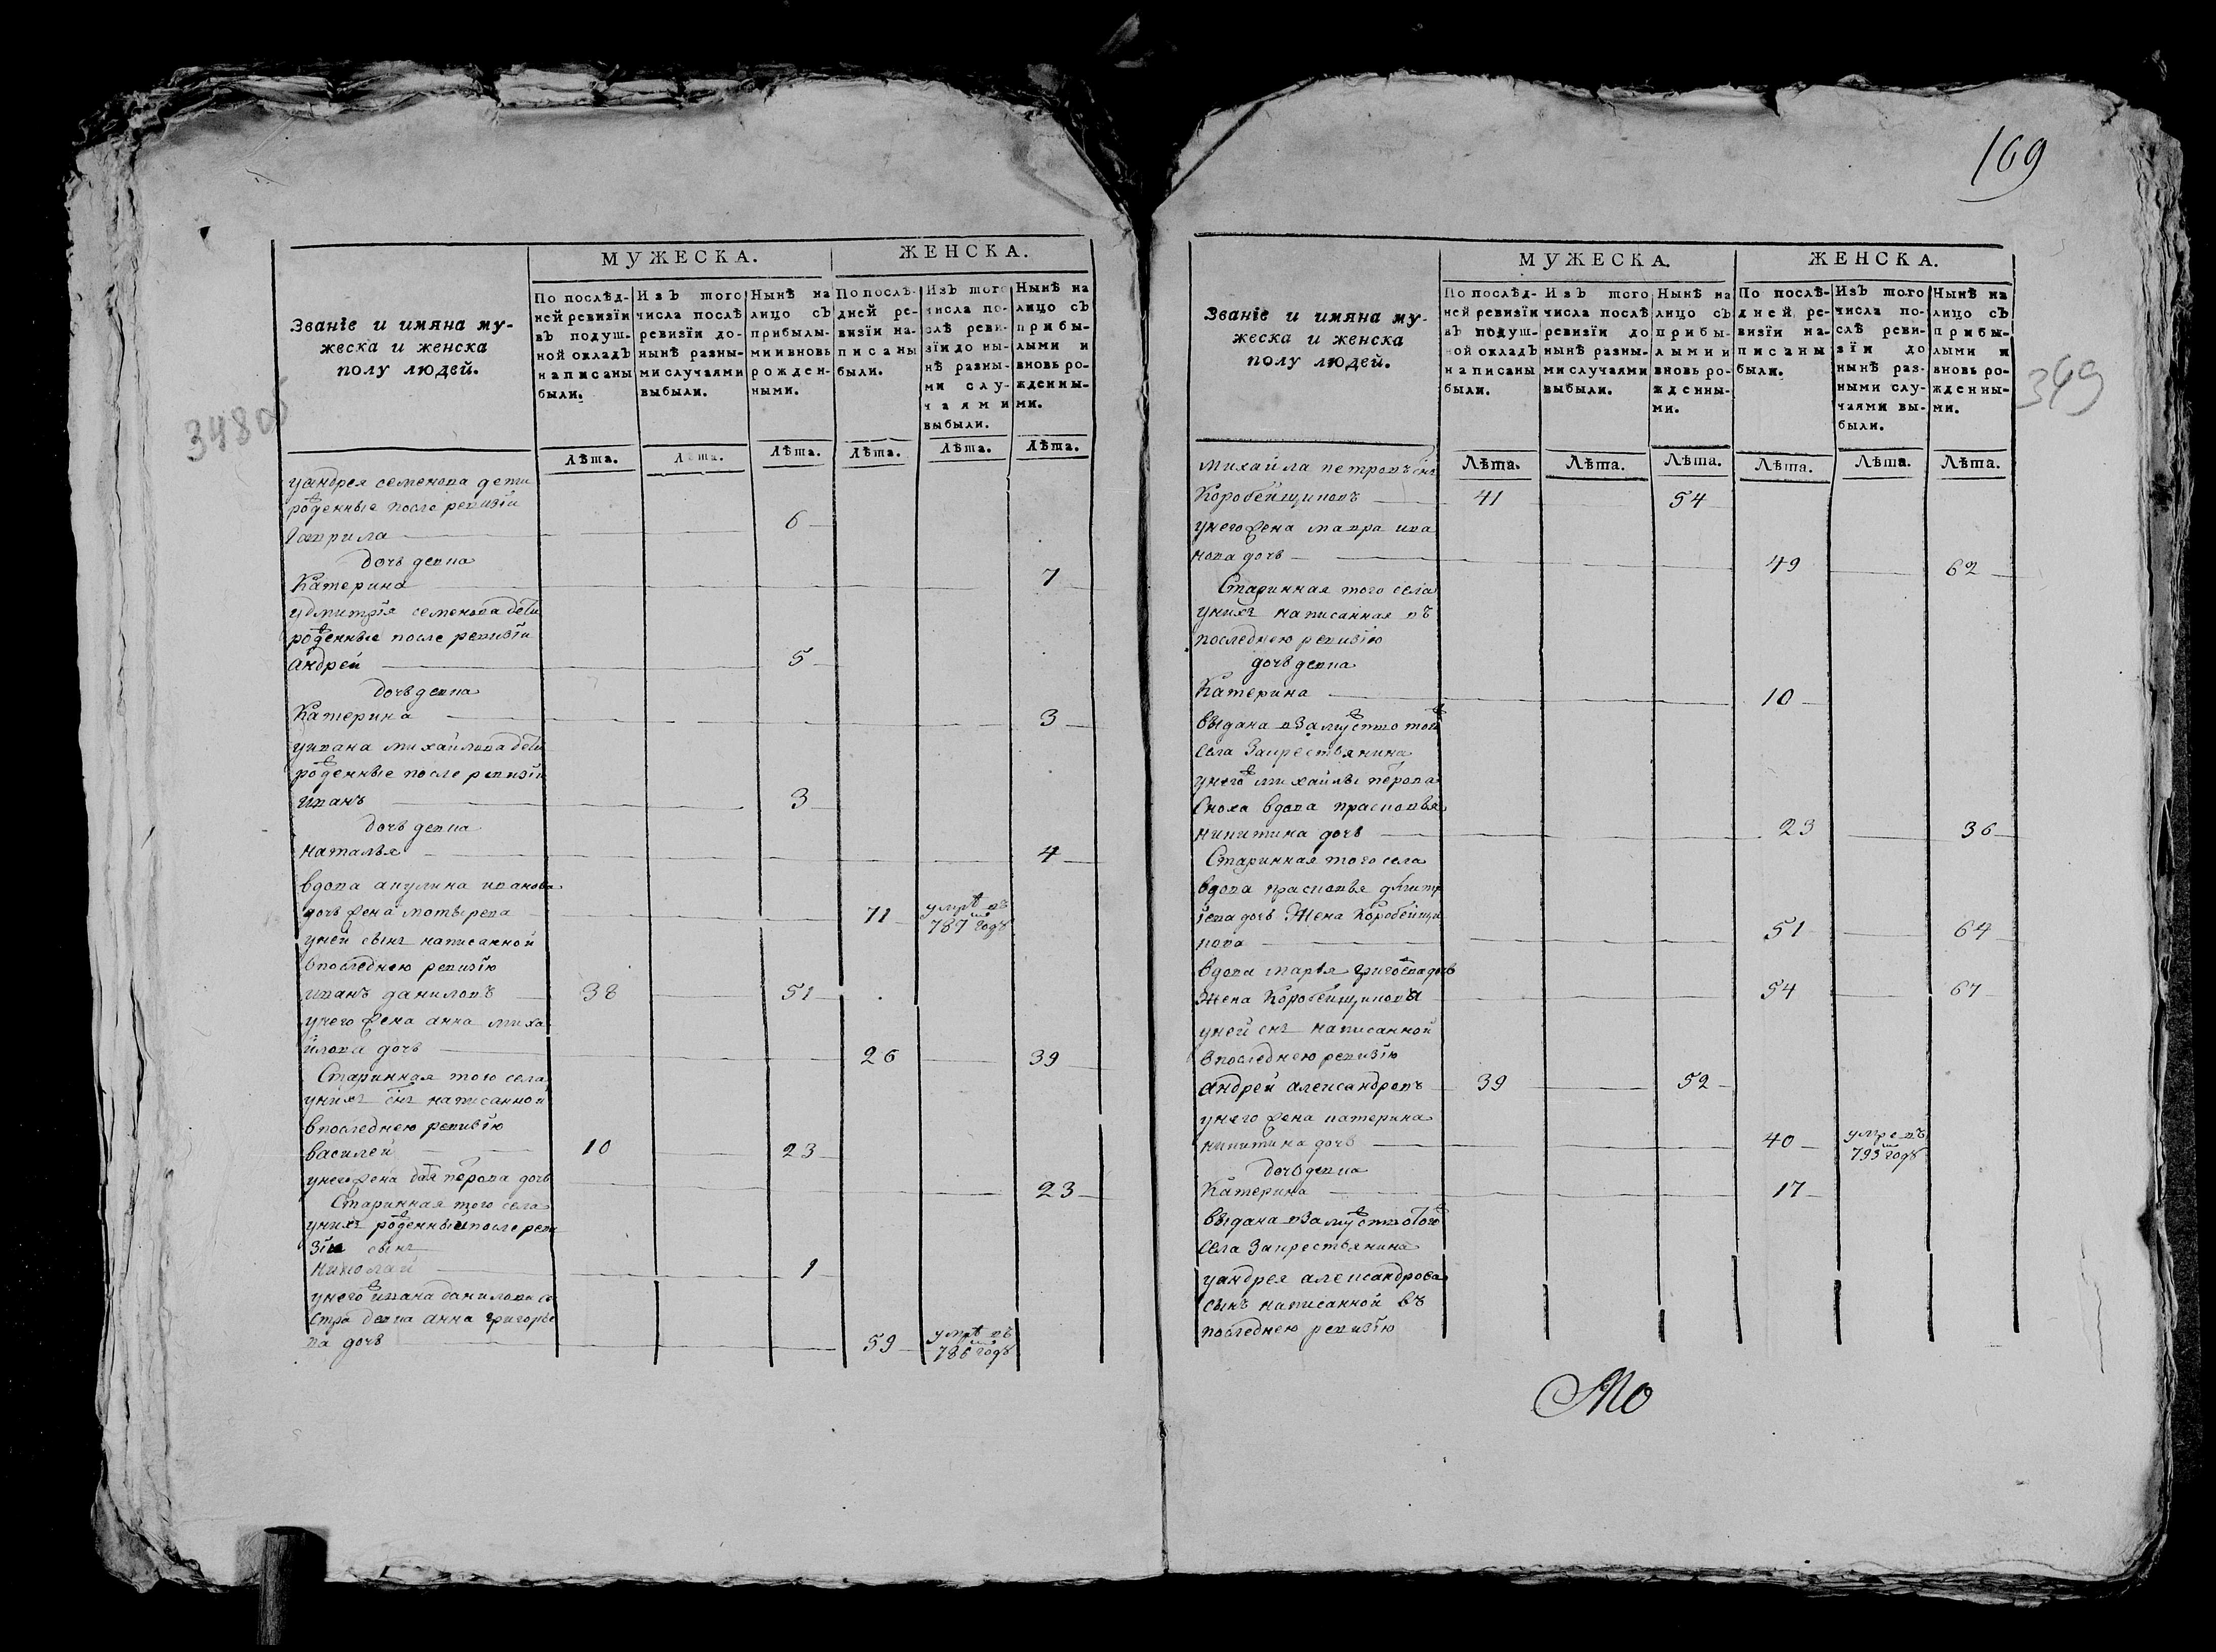 169
348об
349
МУЖЕСКА.
ЖЕНСКА.
Званїе и имяна му-
жеска и женска
полу людей.
По послѣд-
ней ревизїи
въ подуш-
ной окладъ
написаны
были.
Изъ того
числа послѣ
ревизїи до-
нынѣ разны-
ми случаями
выбыли.
Нынѣ на
лицо съ
прибылы-
ми и вновь
рожден-
ными.
По послѣ-
дней ре-
визїи на-
писаны
были.
Изъ того
числа по-
слѣ реви-
зїи до ны-
нѣ разны-
ми слу-
чаями
выбыли.
Нынѣ на
лицо съ
прибы-
лыми и
вновь ро-
жденны-
ми.
Лѣта. Лѣта. Лѣта. Лѣта. Лѣта. Лѣта.
уандрея семенова дети
роженные после ревизїи
Гаврила 6
дочь девка
Катерина 7
удмитрїя семенова дети
роженные после ревизїи
андрей 5
дочь девка
Катерина 3
уивана михайлова дети
роженные после ревизїи
иванъ 3
дочь девка
наталья 4
вдова акулина иванова
дочь жена мотырева 71 умрѣ въ 787м годѣ
уней сынъ написанной
впоследнею ревизїю
иванъ даниловъ 38 51
унего жена анна миха
йлова дочь 26 39
Старинная того села
унихъ снъ написанной
впоследнею ревизїю
василей 10 23
унего жена петрова дочь 23
Старинная того села
унихъ роженные после реви
зїи сынъ
николай 1
унего ивана данилова се
стра девка анна григорье
ва дочь 59 умрѣ въ 786м годѣ
МУЖЕСКА.
ЖЕНСКА.
Званїе и имяна му-
жеска и женска
полу людей.
По послѣд-
ней ревизїи
въ подуш-
ной окладъ
написаны
были.
Изъ того
числа послѣ
ревизїи до
нынѣ разны-
ми случаями
выбыли.
Нынѣ на
лицо съ
прибы-
лыми и
вновь ро-
жденны-
ми.
По послѣ-
дней ре-
визїи на-
писаны
были.
Изъ того
числа по-
слѣ реви-
зїи до
нынѣ раз-
ными слу-
чаями вы-
были.
Нынѣ на
лицо съ
прибы-
лыми и
вновь ро-
жденны-
ми.
Лѣта. Лѣта. Лѣта. Лѣта. Лѣта. Лѣта.
михайла петровъ снъ
Коробейщиковъ 41 54
унего жена мавра ива
нова дочь 49 62
Старинная того села
унихъ написанная въ
последнею ревизїю
дочь девка
Катерина 10
выдана взамужство тогож
села закрестьянина
унегож михайлы петрова
сноха вдова прасковья
никитина дочь 23 36
Старинная того села
вдова прасковья дмитр
їева дочь жена Коробейщи
кова 51 64
вдова марья григоева дочь
жена Коробейщикова 54 67
уней снъ написанной
впоследнею ревизїю
андрей александровъ 39 52
унего жена катерина
никитина дочь 40 умре въ 793м годѣ
дочь девка
Катерина 17
выдана взамужство тогож
села закрестьянина
уандрея александрова
сынъ написанной въ
последнею ревизїю